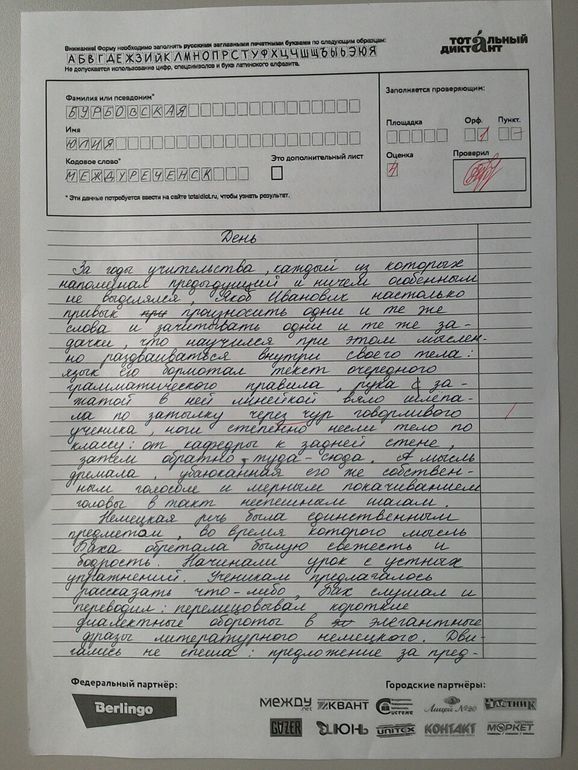 Внимание! Форму необходимо заполнять русскими заглавными печатными буквами по следующим образцам:
АБВГДЕЖЗИЙКЛМНОПРСТУФХЦЧШЩЪЫЬЭЮЯ
Не допускается использование цифр, спецсимволов и букв латинского алфавита.
ТОТАЛЬНЫЙ
ДИКТАНТ
Фамилия или псевдоним*
БУРБОВСКАЯ
Имя
ЮЛИЯ
Кодовое слово*
МЕЖДУРЕЧЕНСК
Это дополнительный лист
* Эти данные потребуется ввести на сайте totaldict.ru, чтобы узнать результат.
Заполняется проверяющим:
Площадка
Орф.
Пункт.
1
-
Оценка
Проверил
4
День
За годы учительства, каждый из которых
напоминал предыдущий и ничем особенным
не выделялся, Якоб Иванович настолько
привык произносить одни и те же
слова и зачитывать одни и те же за-
дачки, что научился при этом мыслен-
но раздваиваться внутри своего тела:
язык его бормотал текст очередного
грамматического правила, рука с за-
жатой в ней линейкой вяло шлепа-
ла по затылку через чур говорливого
ученика, ноги степенно несли тело по
классу: от кафедры к задней стене,
затем обратно, туда-сюда. А мысль
дремала, убаюканная его же собствен-
ным голосом и мерным покачиванием
головы в такт неспешным шагам.
Немецкая речь была единственным
предметом, во время которого мысль
Баха обретала былую свежесть и
бодрость. Начинали урок с устных
упражнений. Ученикам предлагалось
рассказать что-либо, Бах слушал и
переводил: перелицовывал короткие
диалектные обороты в элегантные
фразы литературного немецкого. Дви-
гались не спеша: предложение за пред-
Федеральный партнёр:
Berlingo
Городские партнёры:
МЕЖДУ
.net
КВАНТ
Системе
Лицей №20
ЧАСТНИК
GAZER
ИЮНЬ
UNITEX
КОНТАКТ
МАРКЕТ